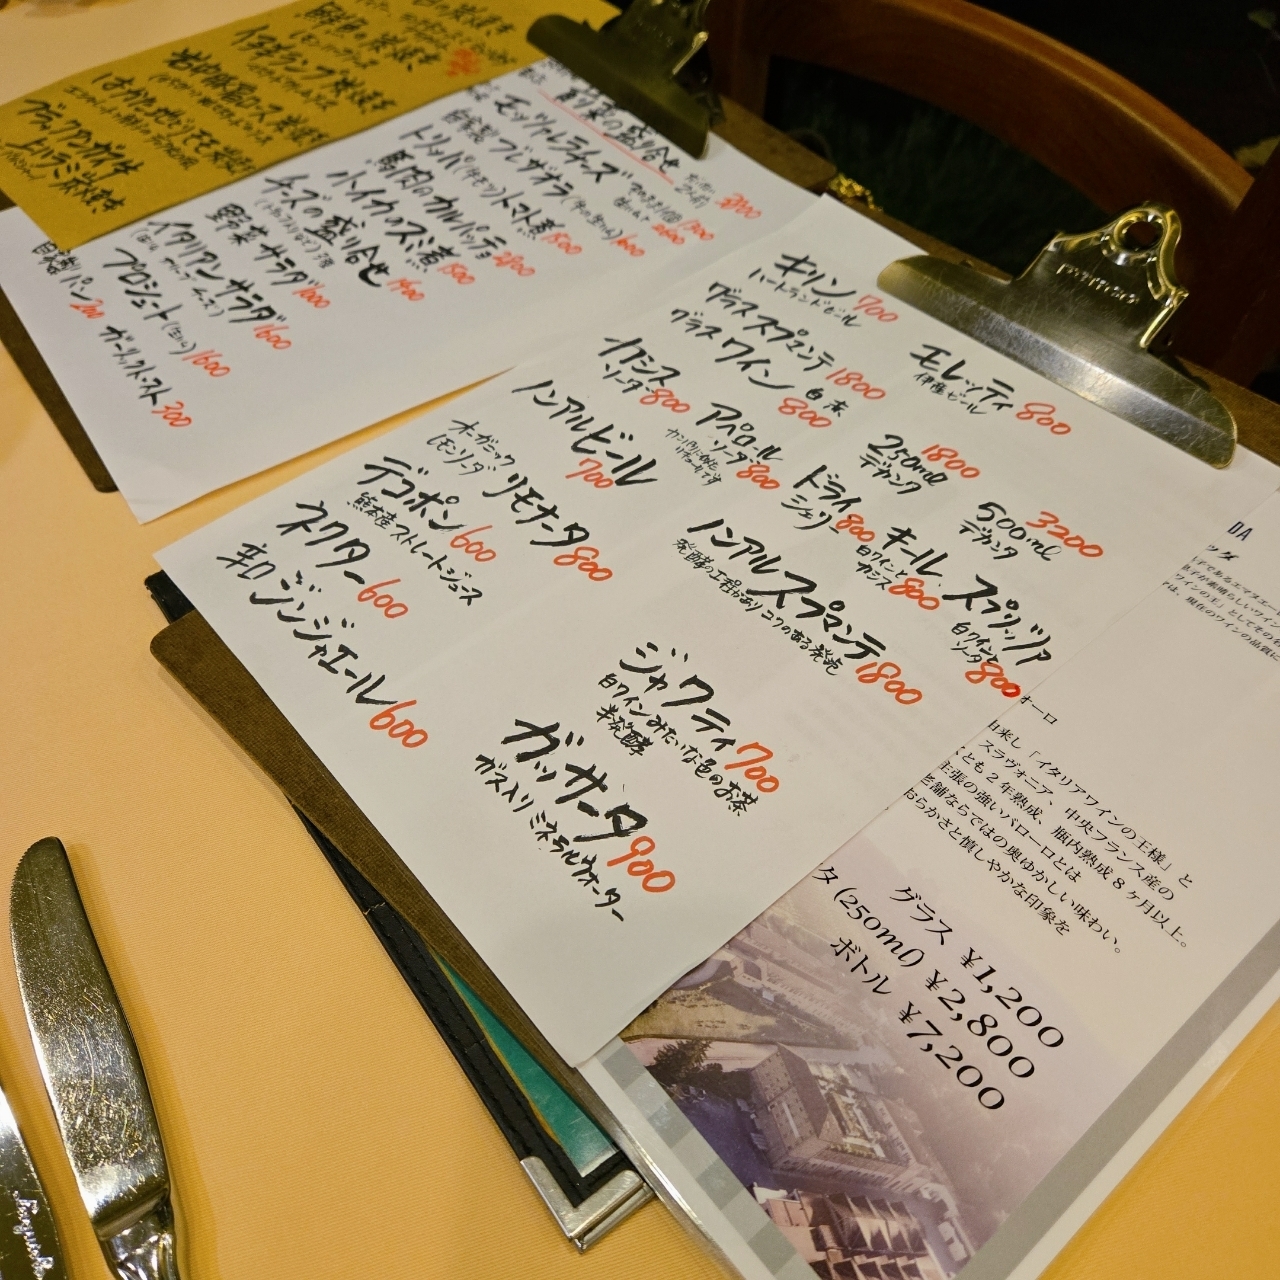 鮮魚の炭焼き
イチボランプ炭焼き
岩中豚肩ロース炭焼き
はかた地どりモモ炭焼き
ブラックアンガス牛
上ハラミ炭焼き
前菜の盛り合せ
モッツァレラチーズ
自家製ブレザオラ(牛の生ハム) 1600
トリッパ(牛モツ)トマト煮 1500
馬肉のカルパッチョ 2200
小イカのスミ煮 1500
チーズの盛り合せ 1400
野菜サラダ 1000
イタリアンサラダ 1600
プロシュート(生ハム) 1600
自家製パン 200
ガーリックトースト 300
キリン 700
ハートランドビール
モレッティ 800
伊産ビール
グラススプマンテ 1800
グラスワイン 白 赤 800
250ml 1800
デカンタ
500ml 3200
デカンタ
カシス
ソーダ 800
アペロール
ソーダ 800
カンパリに似た
リキュールです
ドライ
シェリー 800
キール
白ワインと
カシス 800
スプリッツァ
白ワインと
ソーダ 800
ノンアルビール
700
ノンアルスプマンテ 1800
発酵の工程がありコクのある発泡
オーガニック
レモンソーダ
リモナータ 800
デコポン 600
熊本産ストレートジュース
ネクター 600
辛口ジンジャエール 600
ジャワティ 700
白ワインみたいな色のお茶
半発酵
ガッサータ 900
ガス入りミネラルウォーター
DA
ッダ
ワインの王」としてその名
は、現在のワインの品質に
オーロ
由来し「イタリアワインの王様」と
スラヴォニア、中央フランス産の
とも2年熟成、瓶内熟成8ヶ月以上。
主張の強いバローロとは
老舗ならではの奥ゆかしい味わい。
おらかさと慎しやかな印象を
グラス ¥1,200
タ(250ml) ¥2,800
ボトル ¥7,200